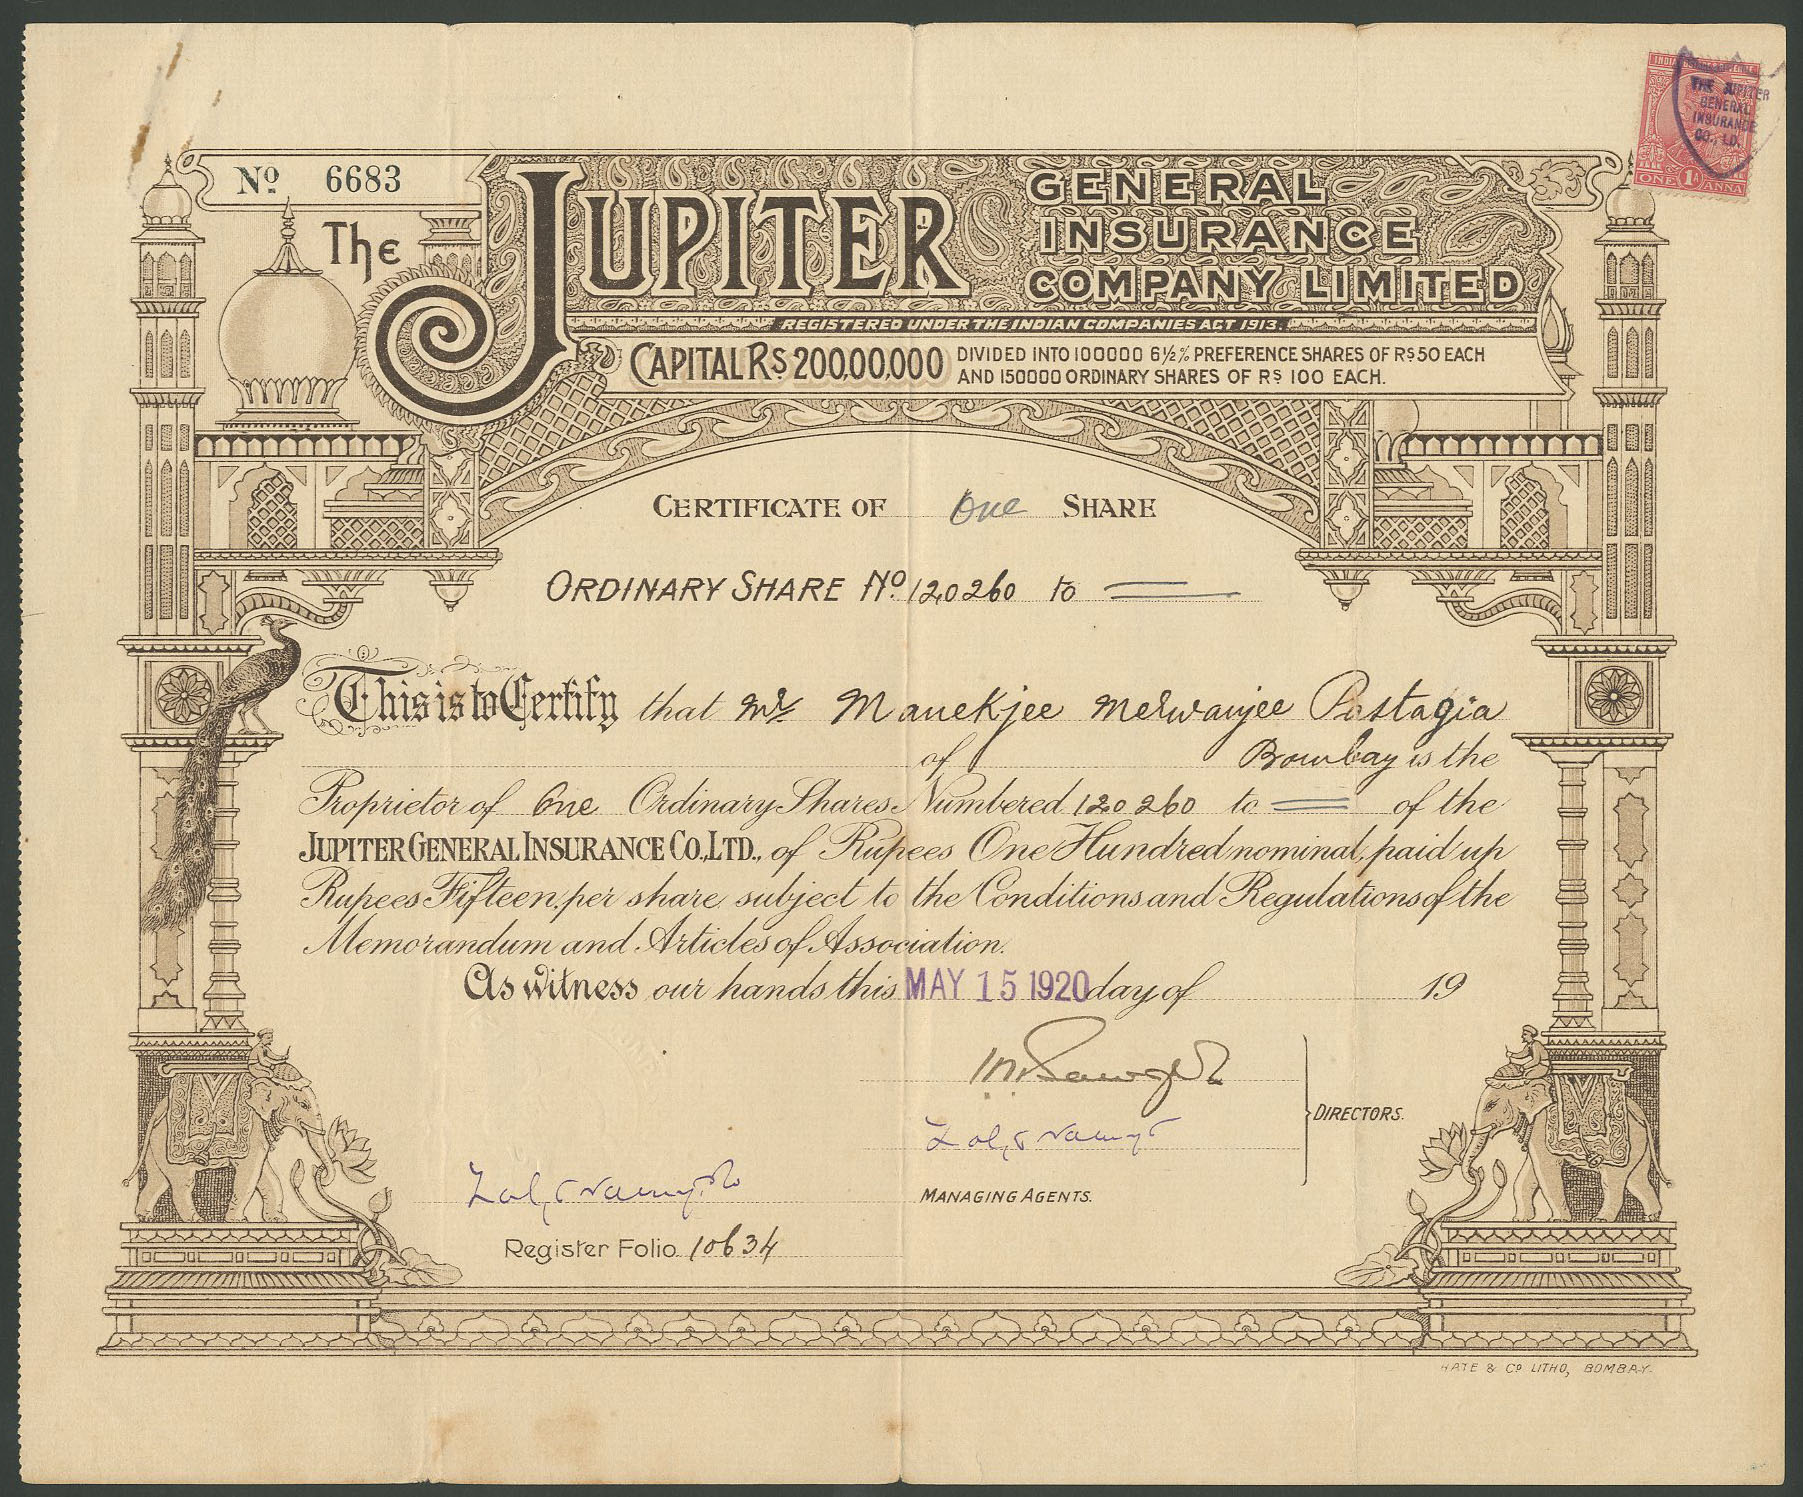 INDIA
THE JUPITER
GENERAL
INSURANCE
CO., LD.
ONE 1A ANNA
Nº 6683
The JUPITER GENERAL
INSURANCE
COMPANY LIMITED
REGISTERED UNDER THE INDIAN COMPANIES ACT 1913.
CAPITAL RS 200,00,000 DIVIDED INTO 100000 6½% PREFERENCE SHARES OF RS 50 EACH
AND 150000 ORDINARY SHARES OF RS 100 EACH.
CERTIFICATE OF One SHARE
ORDINARY SHARE Nº 120260 to
This is to Certify that Mr Manekjee Merwanjee Pastagia
of Bombay is the
Proprietor of One Ordinary Shares Numbered 120260 to of the
JUPITER GENERAL INSURANCE CO., LTD., of Rupees One Hundred nominal, paid up
Rupees Fifteen, per share, subject to the Conditions and Regulations of the
Memorandum and Articles of Association.
As witness our hands this MAY 15 1920 day of 19
DIRECTORS.
MANAGING AGENTS.
Register Folio 10634
HATE & Cº LITHO, BOMBAY.